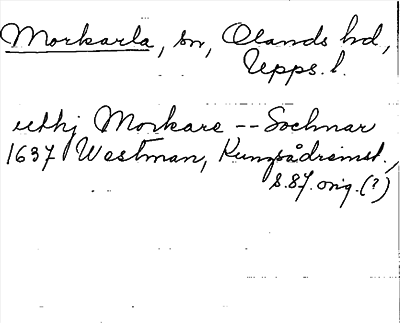 Morkarla, sn, Olands hd,
Upps. l.
uthj Morkare -- Sochnar
1637 Westman, Kungsådrainst.,
S. 87. orig. (?)